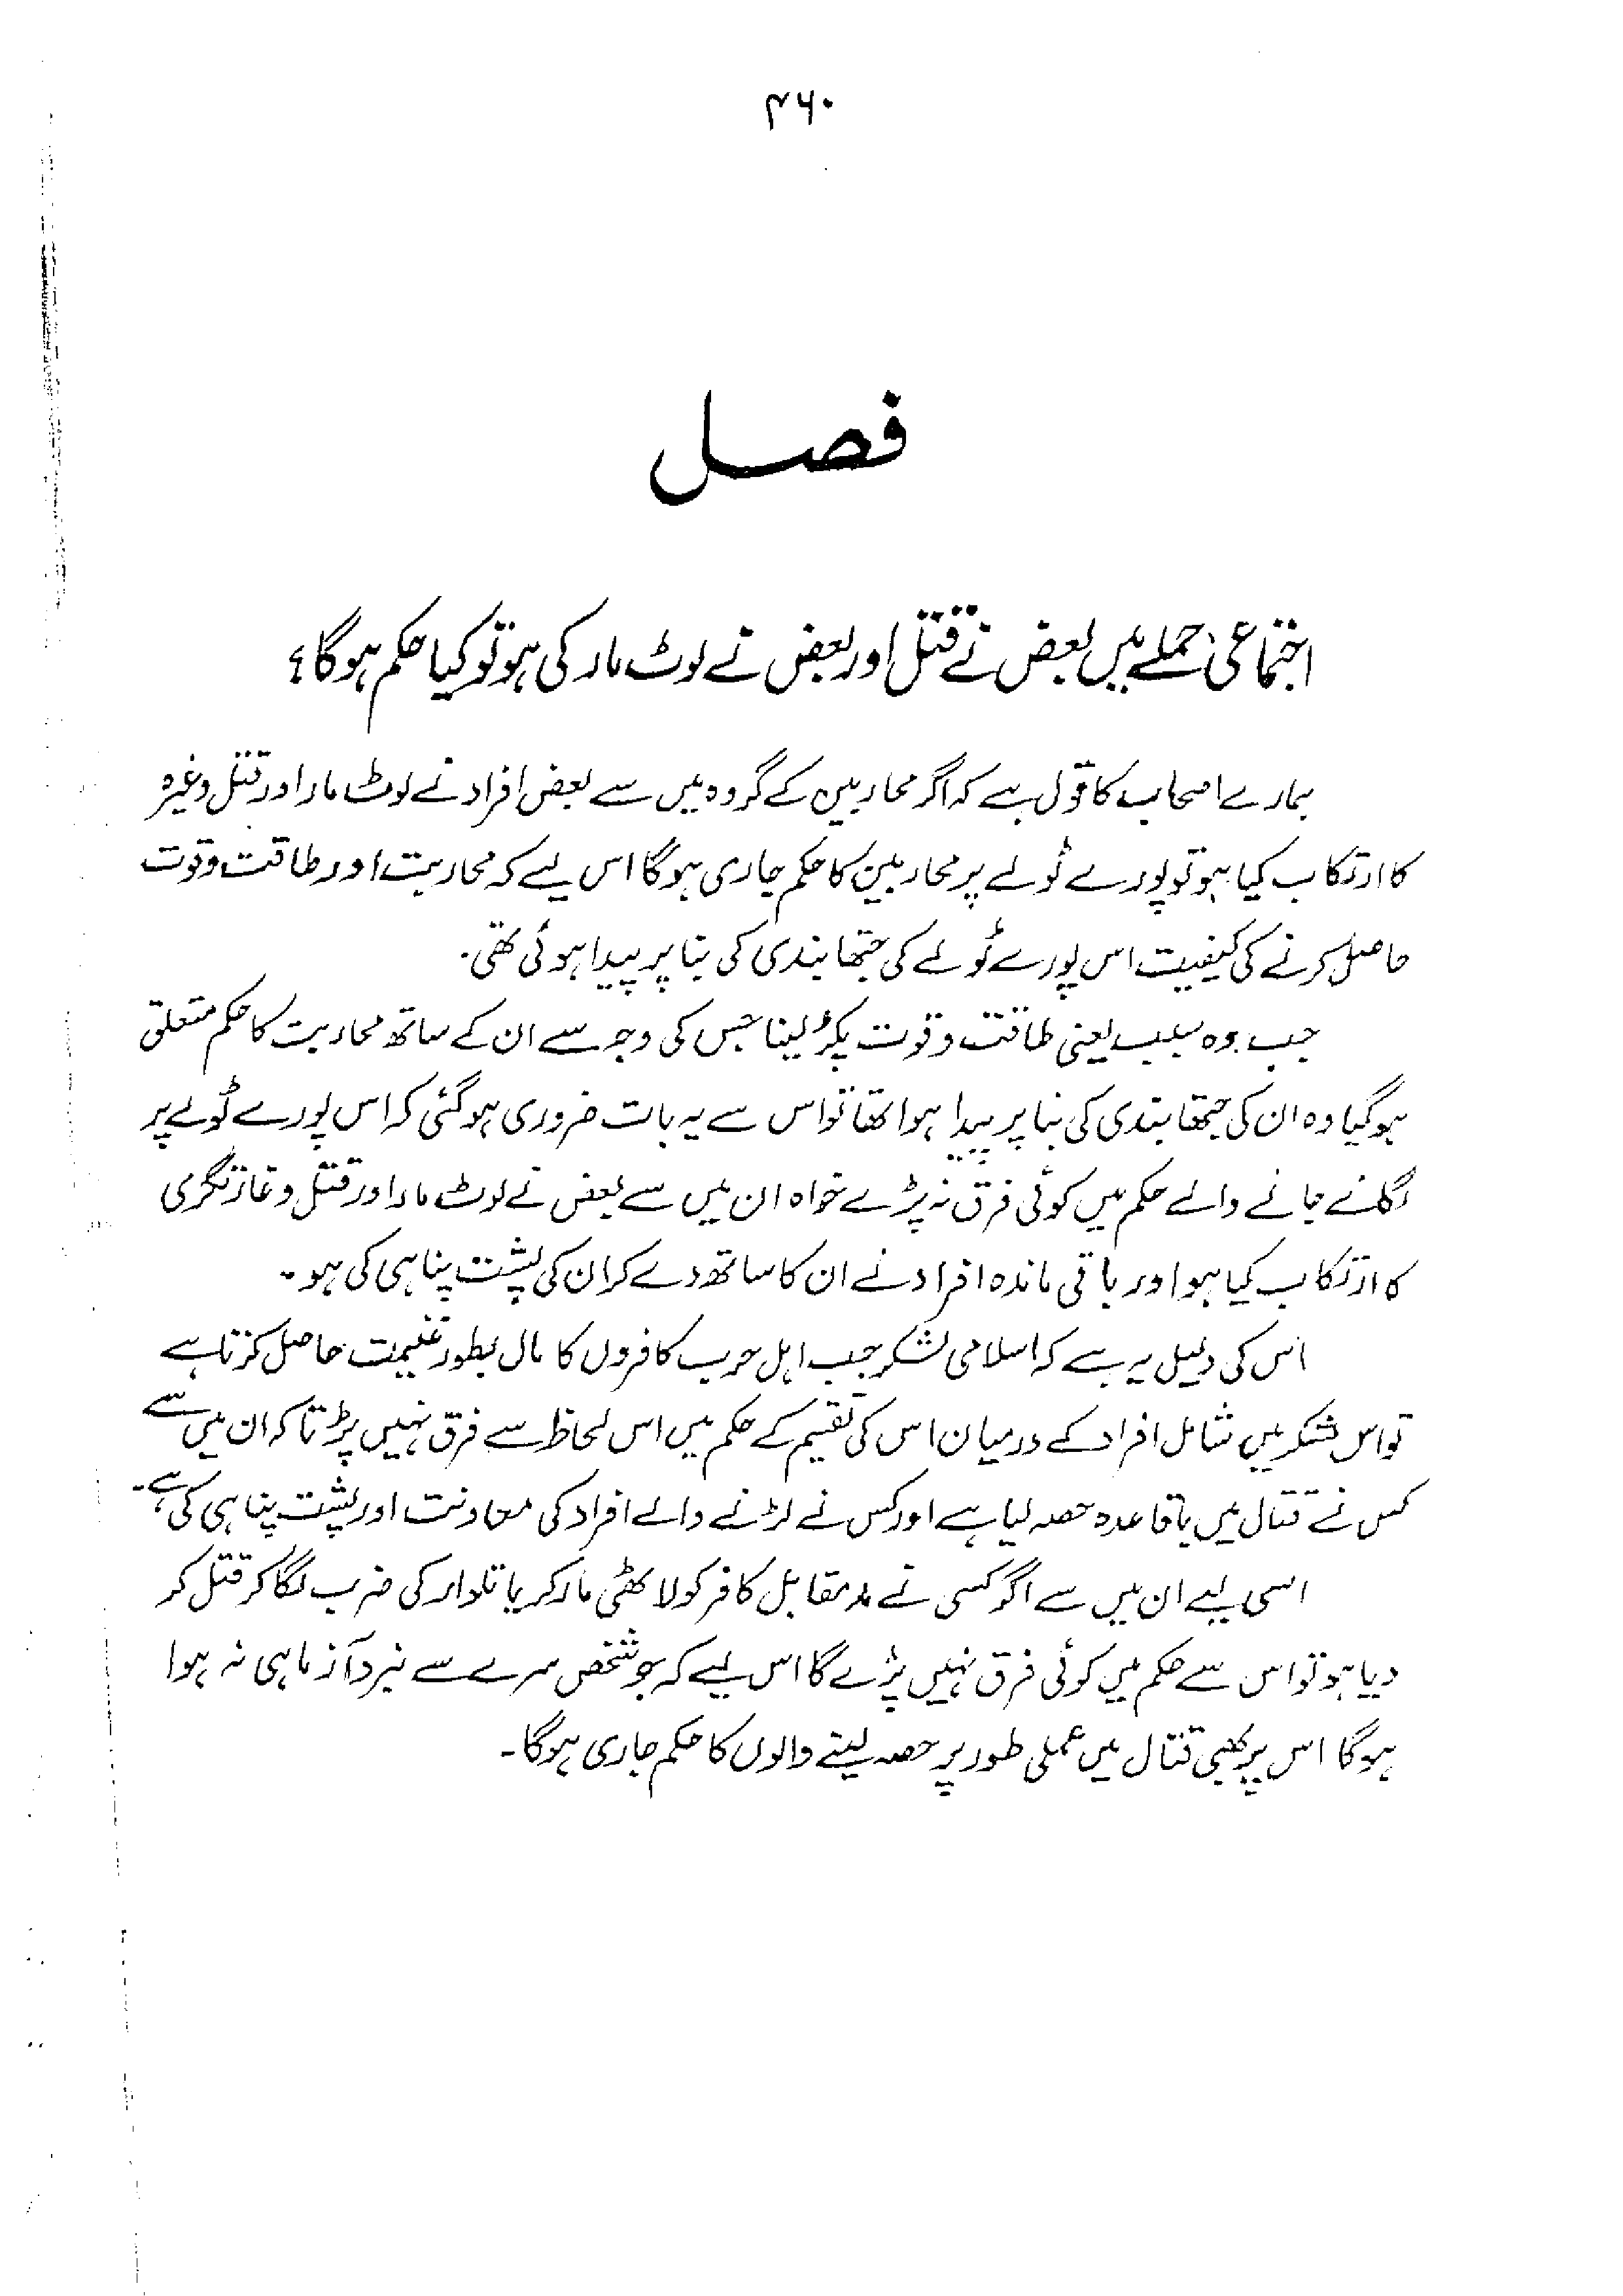 ۴۶۰
فصل
اجتماعی حملے میں بعض نے قتل اور بعض نے لوٹ مار کی ہو تو کیا حکم ہوگا؟
ہمارے اصحاب کا قول ہے کہ اگر محاربین کے گروہ میں سے بعض افراد نے لوٹ مار اور قتل وغیرہ
کا ارتکاب کیا ہو تو پورے ٹولے پر محاربین کا حکم جاری ہوگا اس لیے کہ محاربت اور طاقت و قوت
حاصل کرنے کی کیفیت اس پورے ٹولے کی جتھا بندی کی بنا پر پیدا ہوئی تھی۔
جب وہ سبب یعنی طاقت و قوت پکڑ لینا جس کی وجہ سے ان کے ساتھ محاربت کا حکم متعلق
ہوگیا وہ ان کی جتھا بندی کی بنا پر پیدا ہوا تھا تو اس سے یہ بات ضروری ہوگئی کہ اس پورے ٹولے پر
لگائے جانے والے حکم میں کوئی فرق نہ پڑے خواہ ان میں سے بعض نے لوٹ مار اور قتل و غارتگری
کا ارتکاب کیا ہو اور باقی ماندہ افراد نے ان کا ساتھ دے کر ان کی پشت پناہی کی ہو۔
اس کی دلیل یہ ہے کہ اسلامی لشکر جب اہل حرب کافروں کا مال بطور غنیمت حاصل کرتا ہے
تو اس لشکر میں شامل افراد کے درمیان اس کی تقسیم کے حکم میں اس لحاظ سے فرق نہیں پڑتا کہ ان میں سے
کس نے قتال میں باقاعدہ حصہ لیا ہے اور کس نے لڑنے والے افراد کی معاونت اور پشت پناہی کی ہے۔
اسی لیے ان میں سے اگر کسی نے مدمقابل کافر کو لاٹھی مار کر یا تلوار کی ضرب لگا کر قتل کر
دیا ہو تو اس سے حکم میں کوئی فرق نہیں پڑے گا اس لیے کہ جو شخص سرے سے نبرد آزما ہی نہ ہوا
ہوگا اس پر بھی قتال میں عملی طور پر حصہ لینے والوں کا حکم جاری ہوگا۔